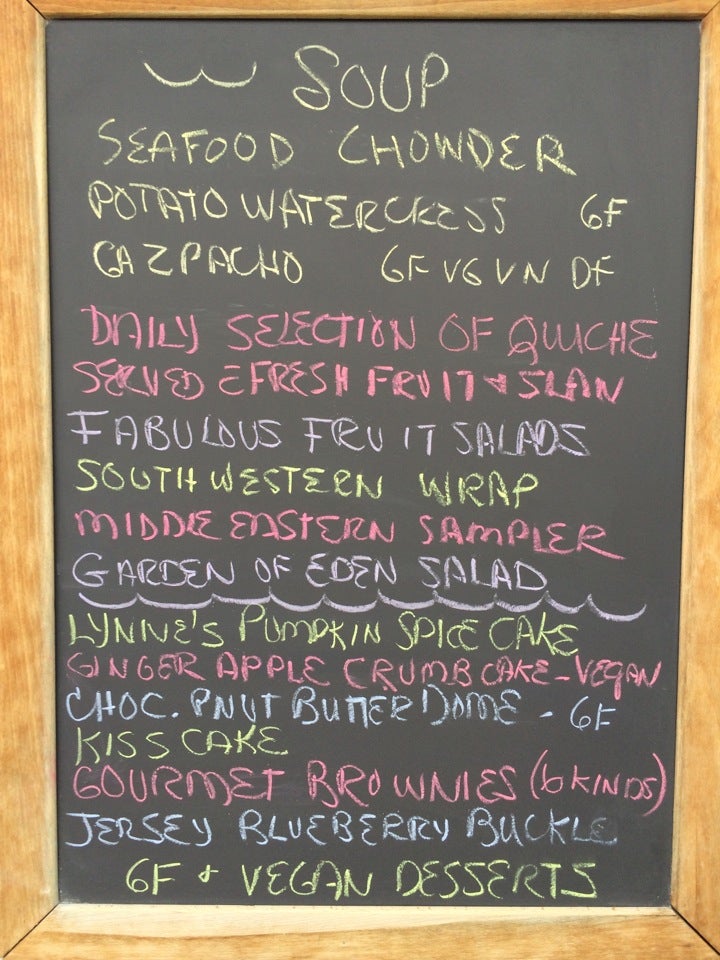 SOUP
SEAFOOD CHOWDER
POTATO WATERCRESS GF
GAZPACHO GF VG VN DF
DAILY SELECTION OF QUICHE
SERVED E FRESH FRUIT & SLAW
FABULOUS FRUIT SALADS
SOUTHWESTERN WRAP
MIDDLE EASTERN SAMPLER
GARDEN OF EDEN SALAD
LYNNE'S PUMPKIN SPICE CAKE
GINGER APPLE CRUMB CAKE - VEGAN
CHOC. PNUT BUTTER DOME - GF
KISS CAKE
GOURMET BROWNIES (6 KINDS)
JERSEY BLUEBERRY BUCKLE
GF & VEGAN DESSERTS